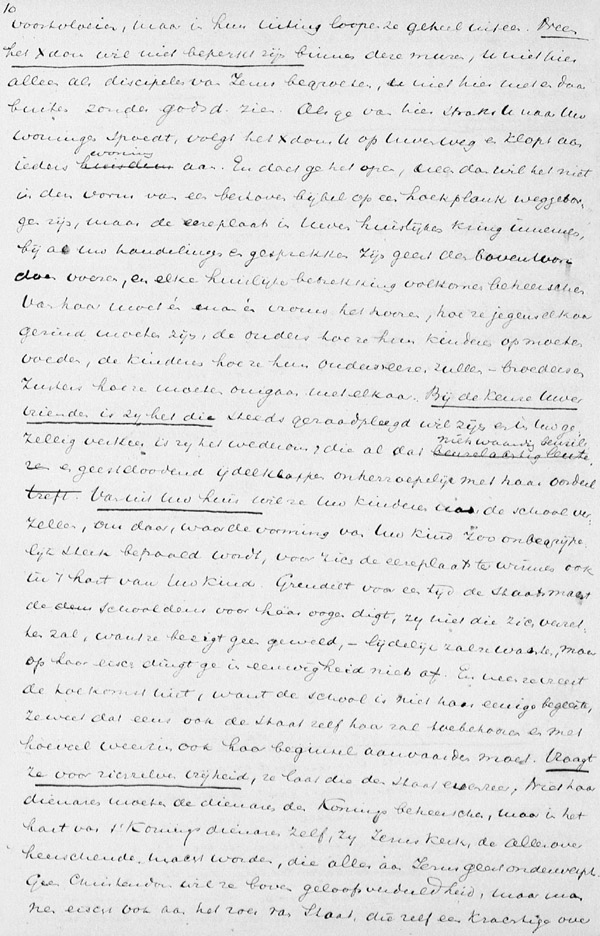 10
voortvloeien, maar in hun uiting loopen ze geheel uiteen. Neen
het Xdom wil niet beperkt zijn binnen deze muren, U niet hier
alleen als discipelen van Jezus begroeten, U niet hier met er daar
buiten zonder godsd. zien. Als ge van hier straks U naar Uw
woningen spoedt, volgt het Xdom U op Uwen weg en klopt aan
ieders woning aan. En doet ge het open, neen dan wil het niet
in den vorm van een bestoven bijbel op een hoekplank weggebor-
gen zijn, maar de eereplaats in Uwen huislijken kring innemen,
bij al Uw handelingen en gesprekken zijn geest den boventoon
doen voeren, en elke huislijke betrekking volkomen beheerschen
Van haar moet én man én vrouw het hooren, hoe ze jegens elkaar
gezind moeten zijn, de ouders hoe ze hun kinderen op moeten
voeden, de kinderen hoe ze hun ouders eeren zullen – broeders en
Zusters hoe ze moeten omgaan met elkaar. Bij de keuze Uwer
vrienden is zy het die steeds geraadpleegd wil zijn en in Uw ge-
zellig verkeer is zy het wederom, die al dat nietswaardig beuzelen
en geestdoodend ijdel klappen onherroepelijk met haar oordeel
treft. Van uit Uw huis wil ze Uw kinderen naar de school ver-
zellen, om daar, waar de vorming van Uw kind zoo onbegrijpe-
lijk sterk bepaald wordt, voor zich de eereplaats te winnen ook
in 't hart van Uw kind. Grendelt voor een tijd de Staatsmacht
de schooldeur voor haar oogen digt, zy niet die zich verzet-
ten zal, want ze bezigt geen geweld, – lijdelijk zal ze wachten, maar
op haar eisch dingt ge in eeuwigheid niets af. En nu ze vreest
de toekomst niet, want de school is niet haar eenige begeerte,
ze weet dat eens ook de Staat zelf haar zal toebehooren en met
hoeveel weerzin ook haar beginsel aanvaarden moet. Vraagt
ze voor zichzelve vrijheid, ze laat die den Staat evenzeer, Niet haar
dienaren moeten de dienaren des Konings beheerschen, maar in het
hart van 's Konings dienaren zelf, zy Jezus kerk, de alles over
heerschende macht worden, die alles aan Jezus geest onderwerpt.
Geen Christendom wil ze boven geloofsverdeeldheid, maar
eischt ook aan het roer van Staat, die zelf een krachtige over